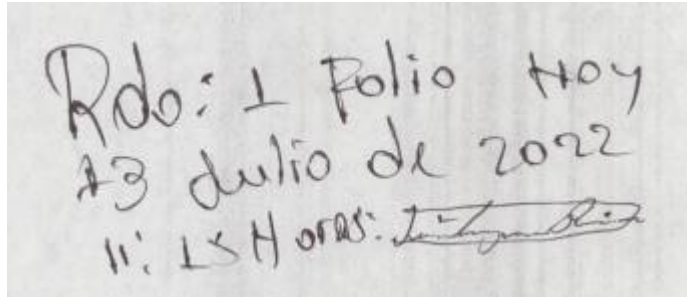 Rdo: 1 Folio Hoy
13 Julio de 2022
11:15 Horas: